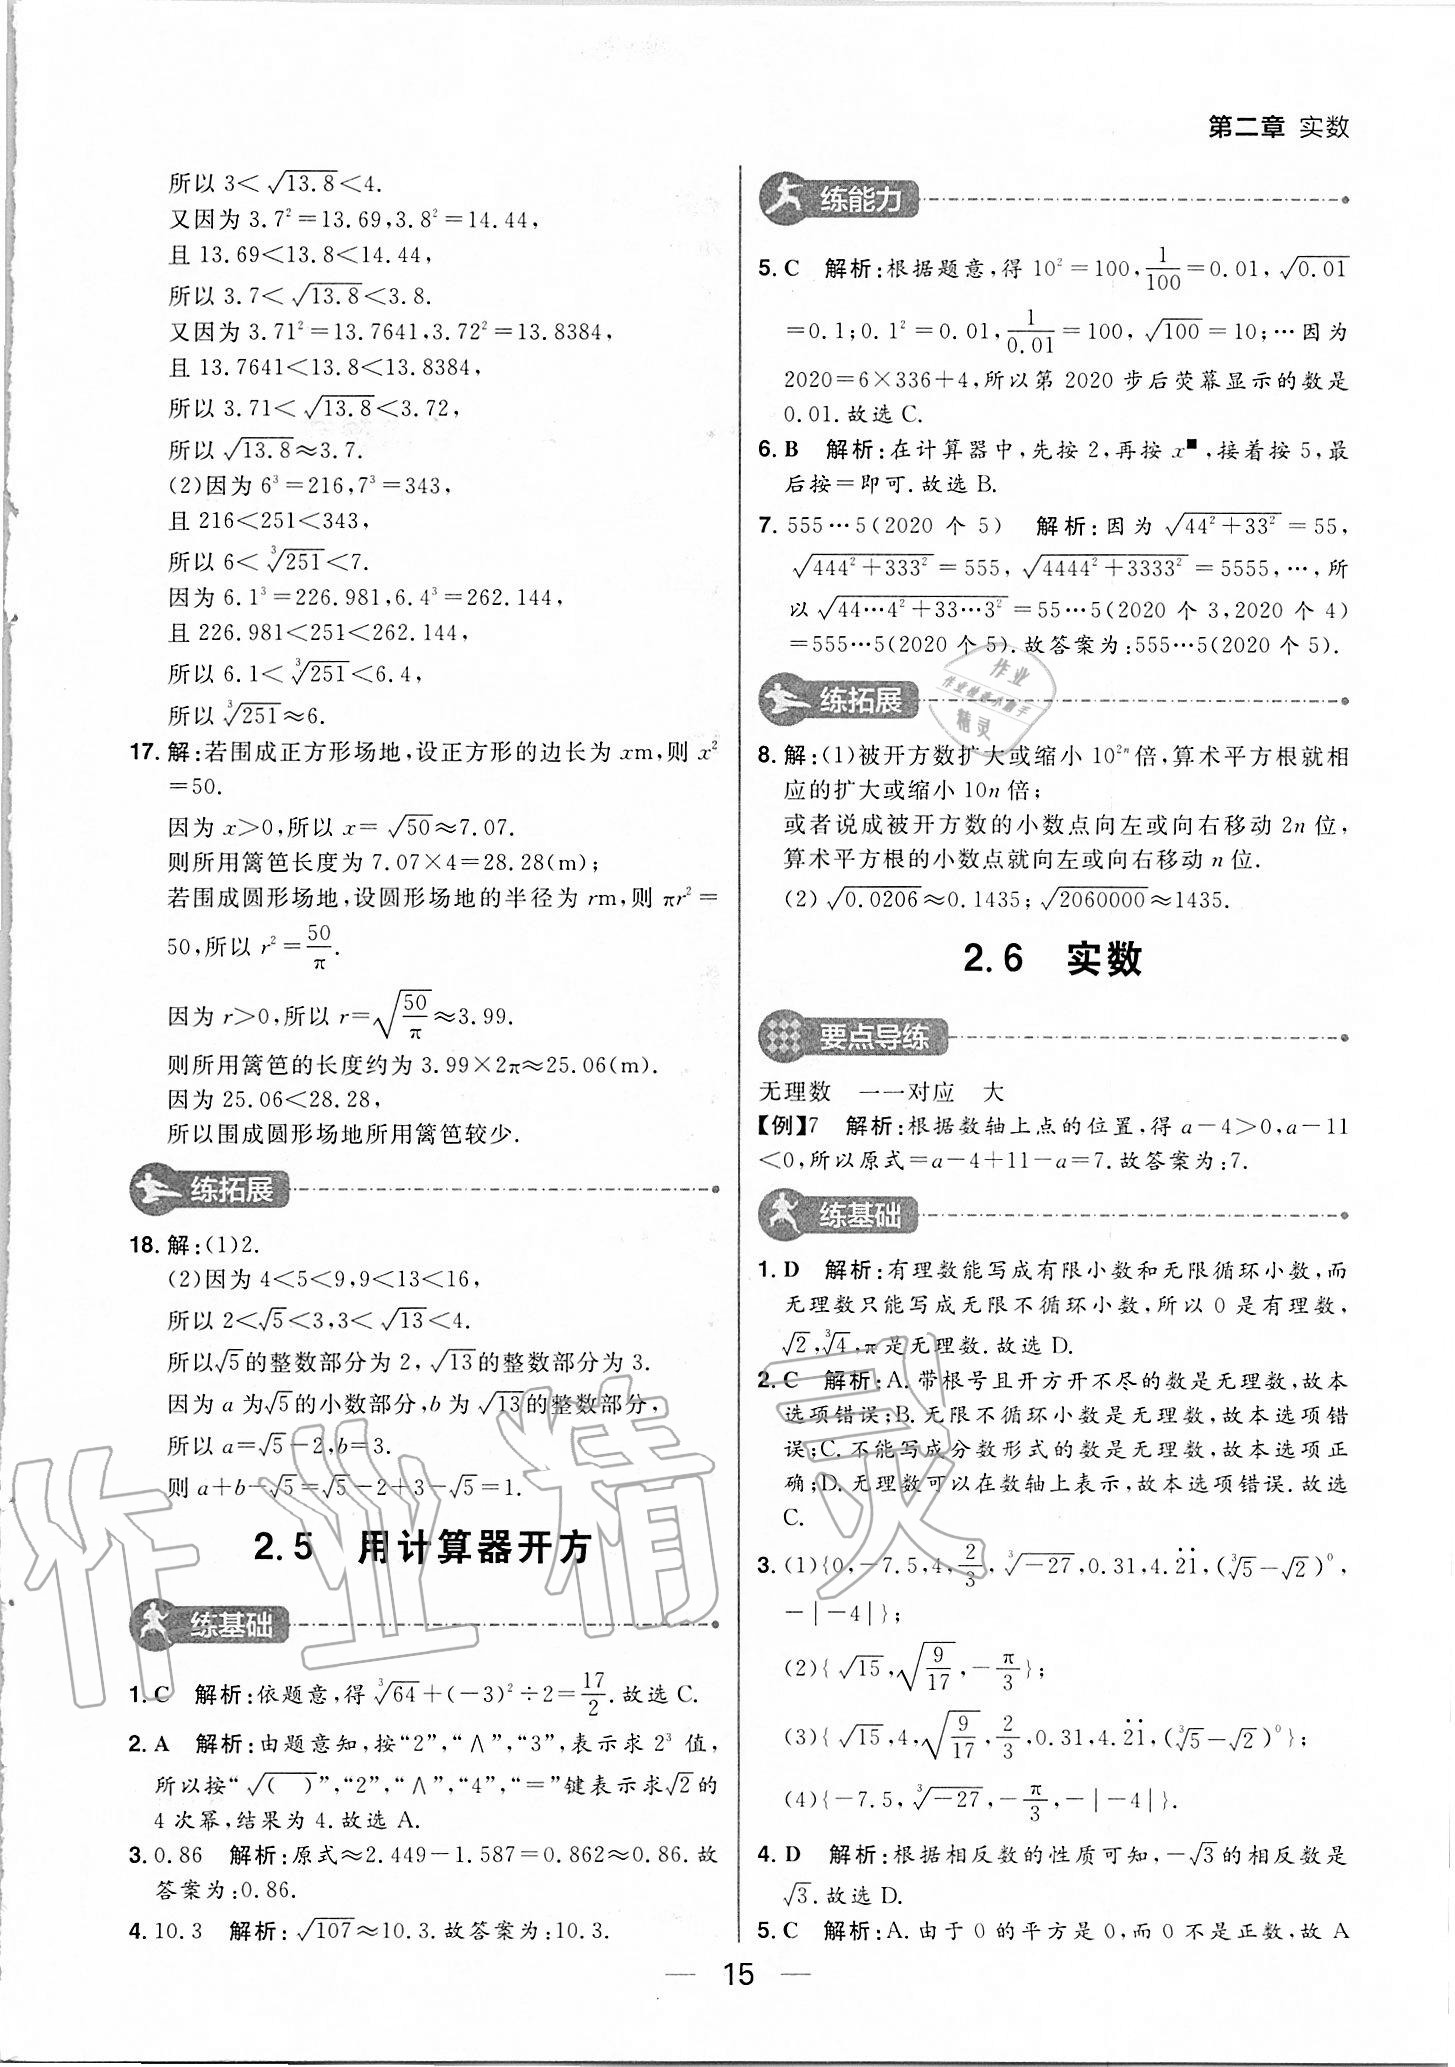 第二章 实数
所以 3<√13.8<4.
又因为 3.7²=13.69,3.8²=14.44,
且 13.69<13.8<14.44,
所以 3.7<√13.8<3.8.
又因为 3.71²=13.7641,3.72²=13.8384,
且 13.7641<13.8<13.8384,
所以 3.71<√13.8<3.72,
所以√13.8≈3.7.
(2)因为 6³=216,7³=343,
且 216<251<343,
所以 6<∛251<7.
因为 6.1³=226.981,6.4³=262.144,
且 226.981<251<262.144,
所以 6.1<∛251<6.4,
所以∛251≈6.
17. 解:若围成正方形场地,设正方形的边长为 xm,则 x²
=50.
因为 x>0,所以 x=√50≈7.07.
则所用篱笆长度为 7.07×4=28.28(m);
若围成圆形场地,设圆形场地的半径为 rm,则 πr²=
50,所以 r²=50/π.
因为 r>0,所以 r=√(50/π)≈3.99.
则所用篱笆的长度约为 3.99×2π≈25.06(m).
因为 25.06<28.28,
所以围成圆形场地所用篱笆较少.
练拓展
18. 解:(1)2.
(2)因为 4<5<9,9<13<16,
所以 2<√5<3,3<√13<4.
所以√5的整数部分为 2,√13的整数部分为 3.
因为 a 为√5的小数部分,b 为√13的整数部分,
所以 a=√5-2,b=3.
则 a+b-√5=√5-2+3-√5=1.
2.5 用计算器开方
练基础
1. C 解析:依题意,得∛64+(-3)²÷2=17/2.故选 C.
2. A 解析:由题意知,按“2”,“∧”,“3”,表示求 2³ 值,
所以按“√( )”,“2”,“∧”,“4”,“=”键表示求√2的
4 次幂,结果为 4.故选 A.
3. 0.86 解析:原式≈2.449-1.587=0.862≈0.86.故
答案为:0.86.
4. 10.3 解析:√107≈10.3.故答案为:10.3.
练能力
5. C 解析:根据题意,得 10²=100,1/100=0.01,√0.01
=0.1;0.1²=0.01,1/0.01=100,√100=10;…因为
2020=6×336+4,所以第 2020 步后荧幕显示的数是
0.01.故选 C.
6. B 解析:在计算器中,先按 2,再按 x■,接着按 5,最
后按=即可.故选 B.
7. 555…5(2020 个 5) 解析:因为 √(44²+33²)=55,
√(444²+333²)=555,√(4444²+3333²)=5555,…,所
以√(44…4²+33…3²)=55…5(2020 个 3,2020 个 4)
=555…5(2020 个 5).故答案为:555…5(2020 个 5).
练拓展
8. 解:(1)被开方数扩大或缩小 10²ⁿ倍,算术平方根就相
应的扩大或缩小 10n 倍;
或者说成被开方数的小数点向左或向右移动 2n 位,
算术平方根的小数点就向左或向右移动 n 位.
(2)√0.0206≈0.1435;√2060000≈1435.
2.6 实数
要点导练
无理数 一一对应 大
【例】7 解析:根据数轴上点的位置,得 a-4>0,a-11
<0,所以原式=a-4+11-a=7.故答案为:7.
练基础
1. D 解析:有理数能写成有限小数和无限循环小数,而
无理数只能写成无限不循环小数,所以 0 是有理数,
√2,∛4,π是无理数.故选 D.
2. C 解析:A.带根号且开方开不尽的数是无理数,故本
选项错误;B.无限不循环小数是无理数,故本选项错
误;C.不能写成分数形式的数是无理数,故本选项正
确;D.无理数可以在数轴上表示,故本选项错误.故选
C.
3. (1){0,-7.5,4,2/3,∛-27,0.31,4.2̇1̇,(∛5-√2)⁰,
-|-4|};
(2){√15,√(9/17),-π/3};
(3){√15,4,√(9/17),2/3,0.31,4.2̇1̇,(∛5-√2)⁰};
(4){-7.5,∛-27,-π/3,-|-4|}.
4. D 解析:根据相反数的性质可知,-√3的相反数是
√3.故选 D.
5. C 解析:A.由于 0 的平方是 0,而 0 不是正数,故 A
— 15 —
作业精灵
作业
作业精灵小助手
精灵